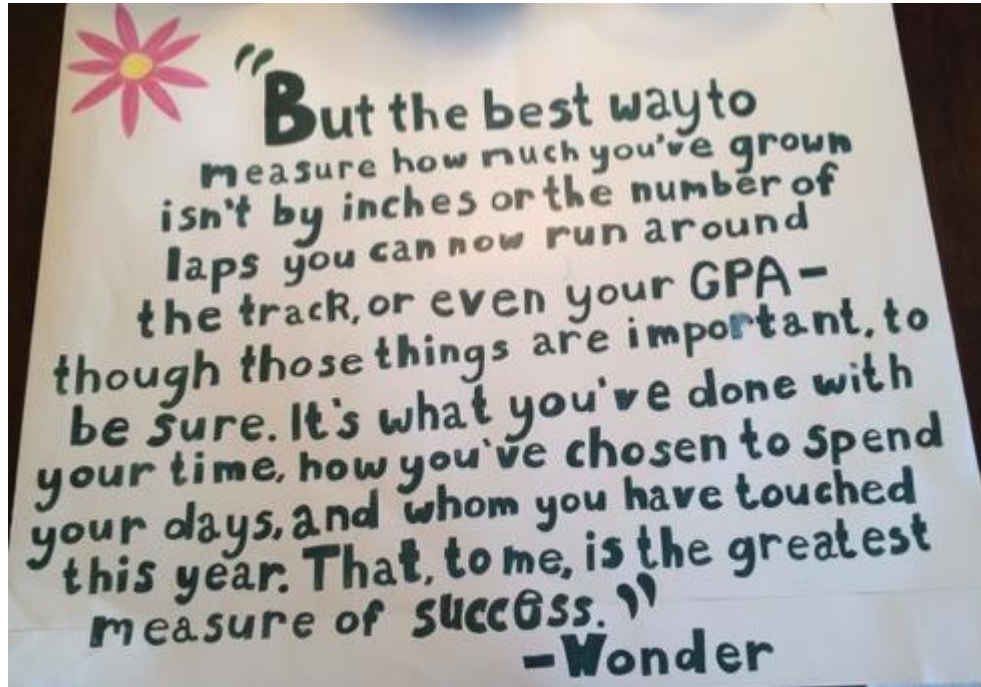 "But the best way to
measure how much you've grown
isn't by inches or the number of
laps you can now run around
the track, or even your GPA-
though those things are important, to
be sure. It's what you've done with
your time, how you've chosen to spend
your days, and whom you have touched
this year. That, to me, is the greatest
measure of success."
-Wonder